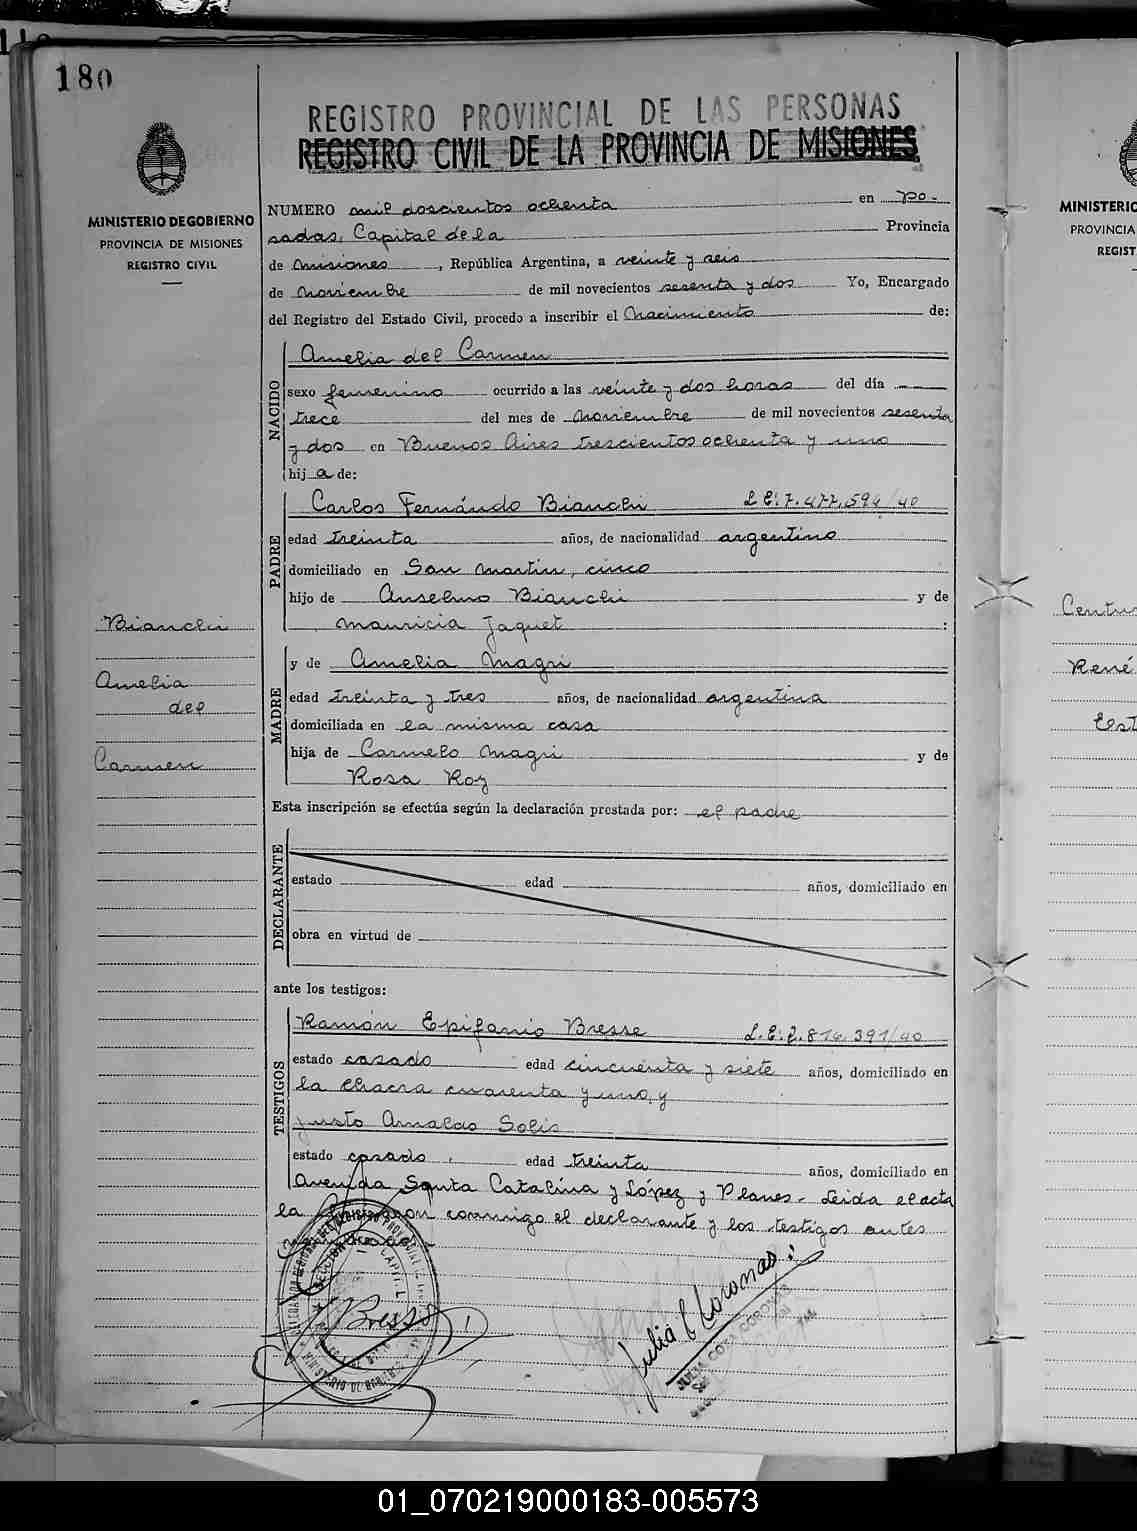 180
REGISTRO PROVINCIAL DE LAS PERSONAS
REGISTRO CIVIL DE LA PROVINCIA DE MISIONES
MINISTERIO DE GOBIERNO
PROVINCIA DE MISIONES
REGISTRO CIVIL
NUMERO mil doscientos ochenta en Po-
sadas, Capital de la Provincia
de Misiones, República Argentina, a veinte y seis
de Noviembre de mil novecientos sesenta y dos Yo, Encargado
del Registro del Estado Civil, procedo a inscribir el Nacimiento de:
NACIDO
Amelia del Carmen
sexo femenino ocurrido a las veinte y dos horas del día
trece del mes de Noviembre de mil novecientos sesenta
y dos en Buenos Aires trescientos ochenta y uno
hij a de:
PADRE
Carlos Fernándo Bianchi L E: 7.477.594/40
edad treinta años, de nacionalidad argentino
domiciliado en San Martin, cinco
hijo de Anselmo Bianchi y de
Mauricia Jaquet :
MADRE
y de Amelia Magri
edad treinta y tres años, de nacionalidad argentina
domiciliada en la misma casa
hija de Carmelo Magri y de
Rosa Roy
Bianchi
Amelia
del
Carmen
Esta inscripción se efectúa según la declaración prestada por: el padre
DECLARANTE
estado edad años, domiciliado en
obra en virtud de
ante los testigos:
TESTIGOS
Ramón Epifanio Bresse L.E: 2.814.391/40
estado casado edad cincuenta y siete años, domiciliado en
la Chacra cuarenta y uno, y
Justo Arnaldo Solis
estado casado, edad treinta años, domiciliado en
Avenida Santa Catalina y López y Planes. Leida el acta
la conmigo el declarante y los testigos antes
Bresse
Julia C Coronas
JULIA COTA CORONAS
MINISTERIO
PROVINCIA
REGIST
Centur
René
01_070219000183-005573